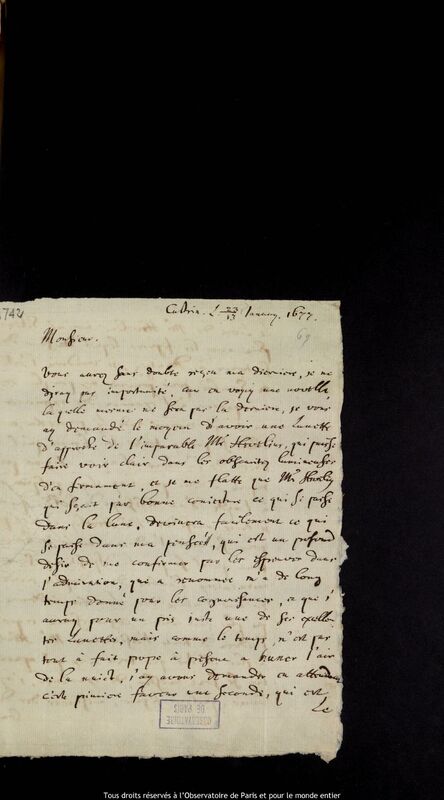 Custrin. L 23/13 January. 1677.
69
Monsieur.
vous aurez sans doubte reçeu ma derniere, je ne
diray pas importunité, car en voyçy une nouvelle
la quelle mesme ne sera pas la derniere, je vous
ay demandé le moyen d'avoir une lunette
d'approche de l'incomparable Mr Hevelius, qui puisse
faire voir clair dans les obscuritez lumineuses
d'en firmament, et je me flatte que Mr Hevelius
qui sçait par bonne coniecture ce qui se passe
dans la lune, devinera facilement ce qui
se passe dans ma pensée, qui est un profond
desir de me confirmer par les espreuves dans
l'admiration, que sa renommée m'a de long
temps donné pour les cognoissances, et que j'
auray pour un prix juste une de ses excellen-
tes lunettes, mais comme le temps n'est pas
tout à fait propre à present a humer l'air
de la nuict, j'ay à vous demander en attendant
ceste premiere faveur une seconde, qui est
Le
OBSERVATOIRE
DE PARIS
Tous droits réservés à l'Observatoire de Paris et pour le monde entier